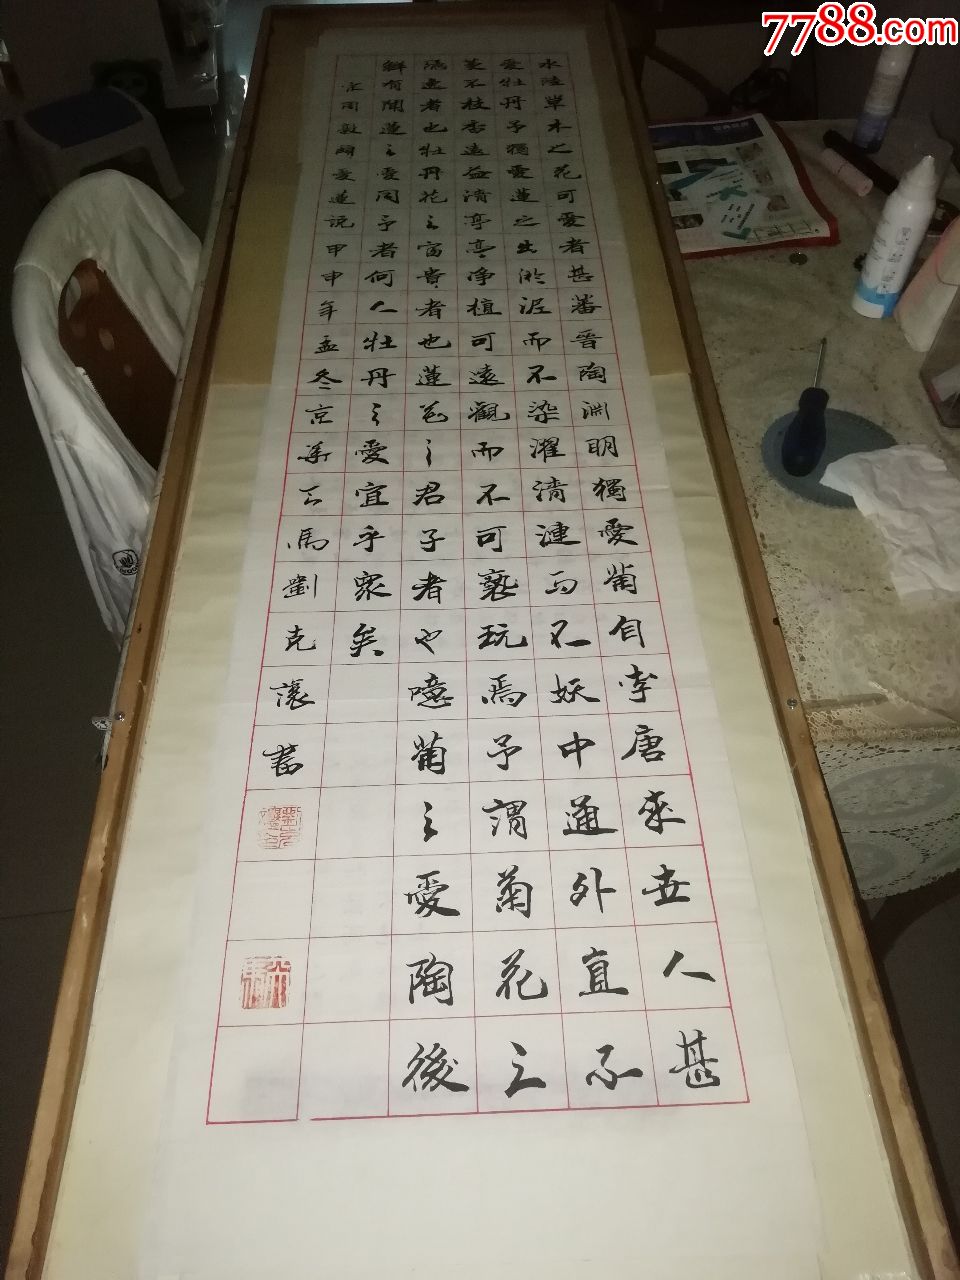 水陸草木之花可愛者甚蕃晉陶渊明獨愛菊自李唐來世人甚
愛牡丹予獨愛蓮之出淤泥而不染濯清漣而不妖中通外直不
蔓不枝香遠益清亭亭淨植可遠觀而不可褻玩焉予謂菊花之
隱逸者也牡丹花之富貴者也蓮花之君子者也噫菊之愛陶後
鮮有聞蓮之愛同予者何人牡丹之愛宜乎眾矣
宋周敦頤愛蓮說甲申年孟冬京華天馬劉克讓書
7788.com